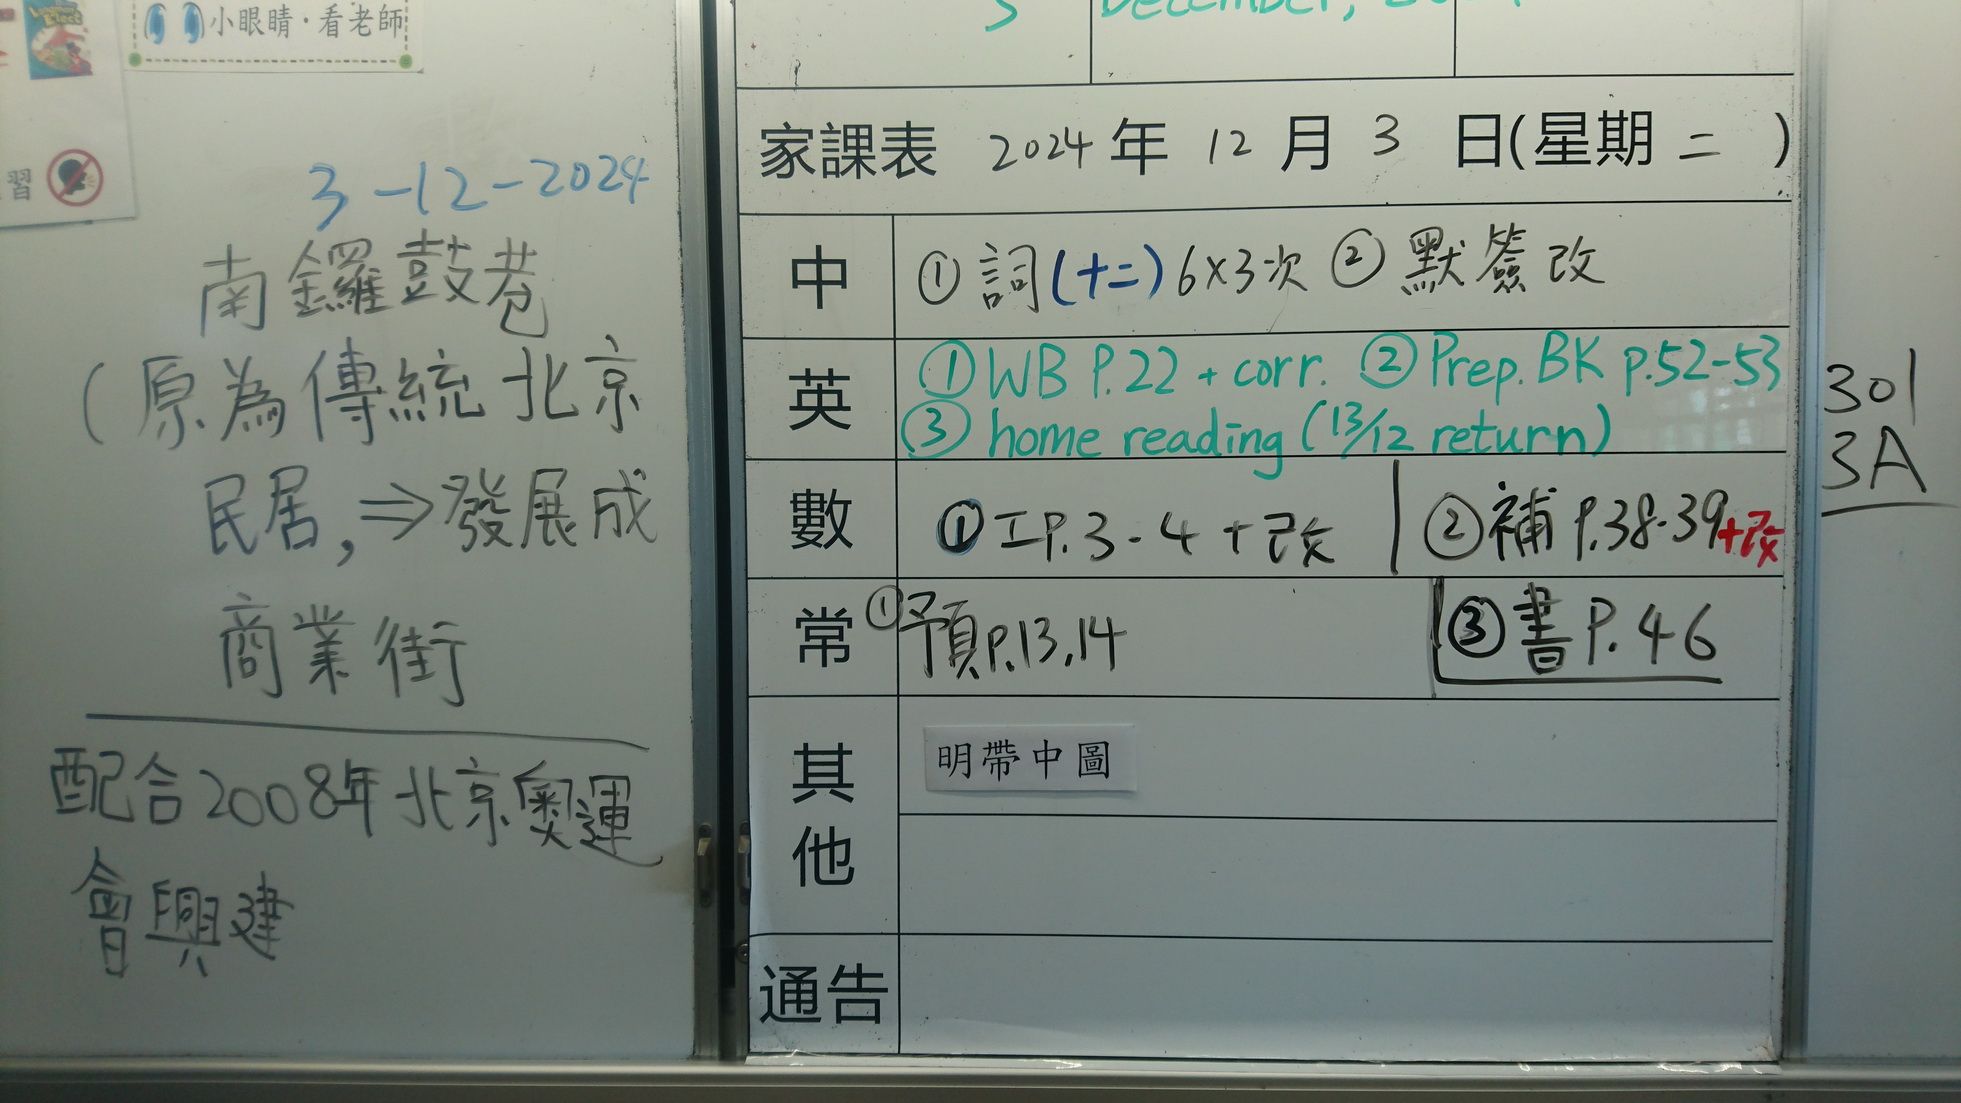 小眼睛·看老師
習
3-12-2024
南鑼鼓巷
(原為傳統北京
民居,⇒發展成
商業街
配合2008年北京奧運
會興建
3 December, 2024
家課表 2024年 12月 3日(星期二)
中 ①詞(十二)6×3次 ②默簽改
英 ①WB P.22 + corr. ②Prep. BK p.52-53
③home reading (13/12 return)
數 ①工P.3-4+改 ②補P.38-39+改
常 ①預P.13,14 ③書P.46
其他 明帶中圖
通告
301
3A